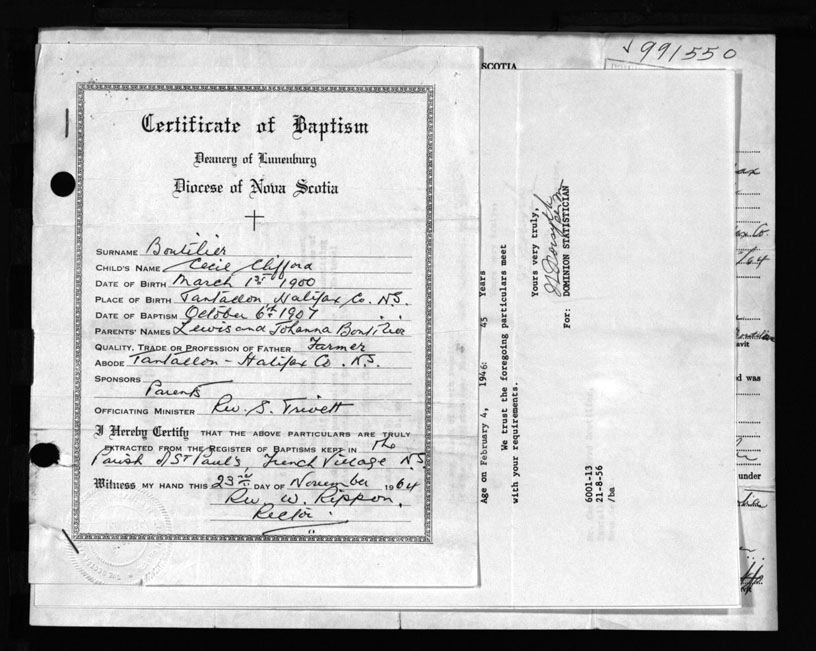 991550
SCOTIA
Certificate of Baptism
Deanery of Lunenburg
Diocese of Nova Scotia
SURNAME Boutilier
CHILD'S NAME Cecil Clifford
DATE OF BIRTH March 1st 1900
PLACE OF BIRTH Tantallon, Halifax Co. N.S.
DATE OF BAPTISM October 6th 1907
PARENTS' NAMES Lewis and Johanna Boutilier
QUALITY, TRADE OR PROFESSION OF FATHER Farmer
ABODE Tantallon - Halifax Co. N.S.
SPONSORS
Parents
OFFICIATING MINISTER Rev. S. Trivett
I Hereby Certify THAT THE ABOVE PARTICULARS ARE TRULY
EXTRACTED FROM THE REGISTER OF BAPTISMS KEPT IN The
Parish of St Paul's, French Village N.S.
Witness MY HAND THIS 23rd DAY OF November 1964
Rev. W. Rippon.
Rector
Age on February 4, 1946: 45 Years
We trust the foregoing particulars meet
with your requirements.
Yours very truly,
For: DOMINION STATISTICIAN
6001-13
21-8-56
/ba
ax
ax Co.
64
avit
d was
under